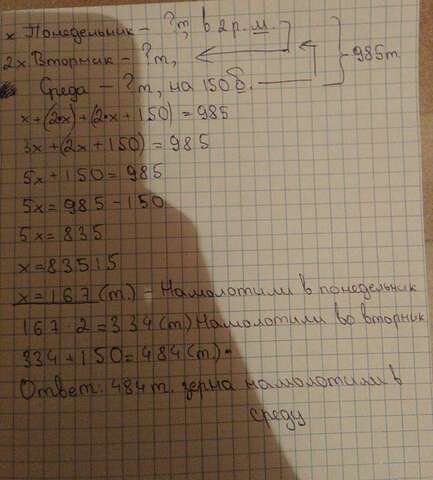 x Понедельник - ?т, в 2 р. м.
2x Вторник - ?т,
Среда - ?т, на 150 б.
985т
x+(2x)+(2·x+150)=985
3x+(2x+150)=985
5x+150=985
5x=985-150
5x=835
x=835:5
x=167(т.) - Намолотили в понедельник
167·2=334(т) Намолотили во вторник
334+150=484(т.)-
Ответ: 484 т. зерна намолотили в
среду